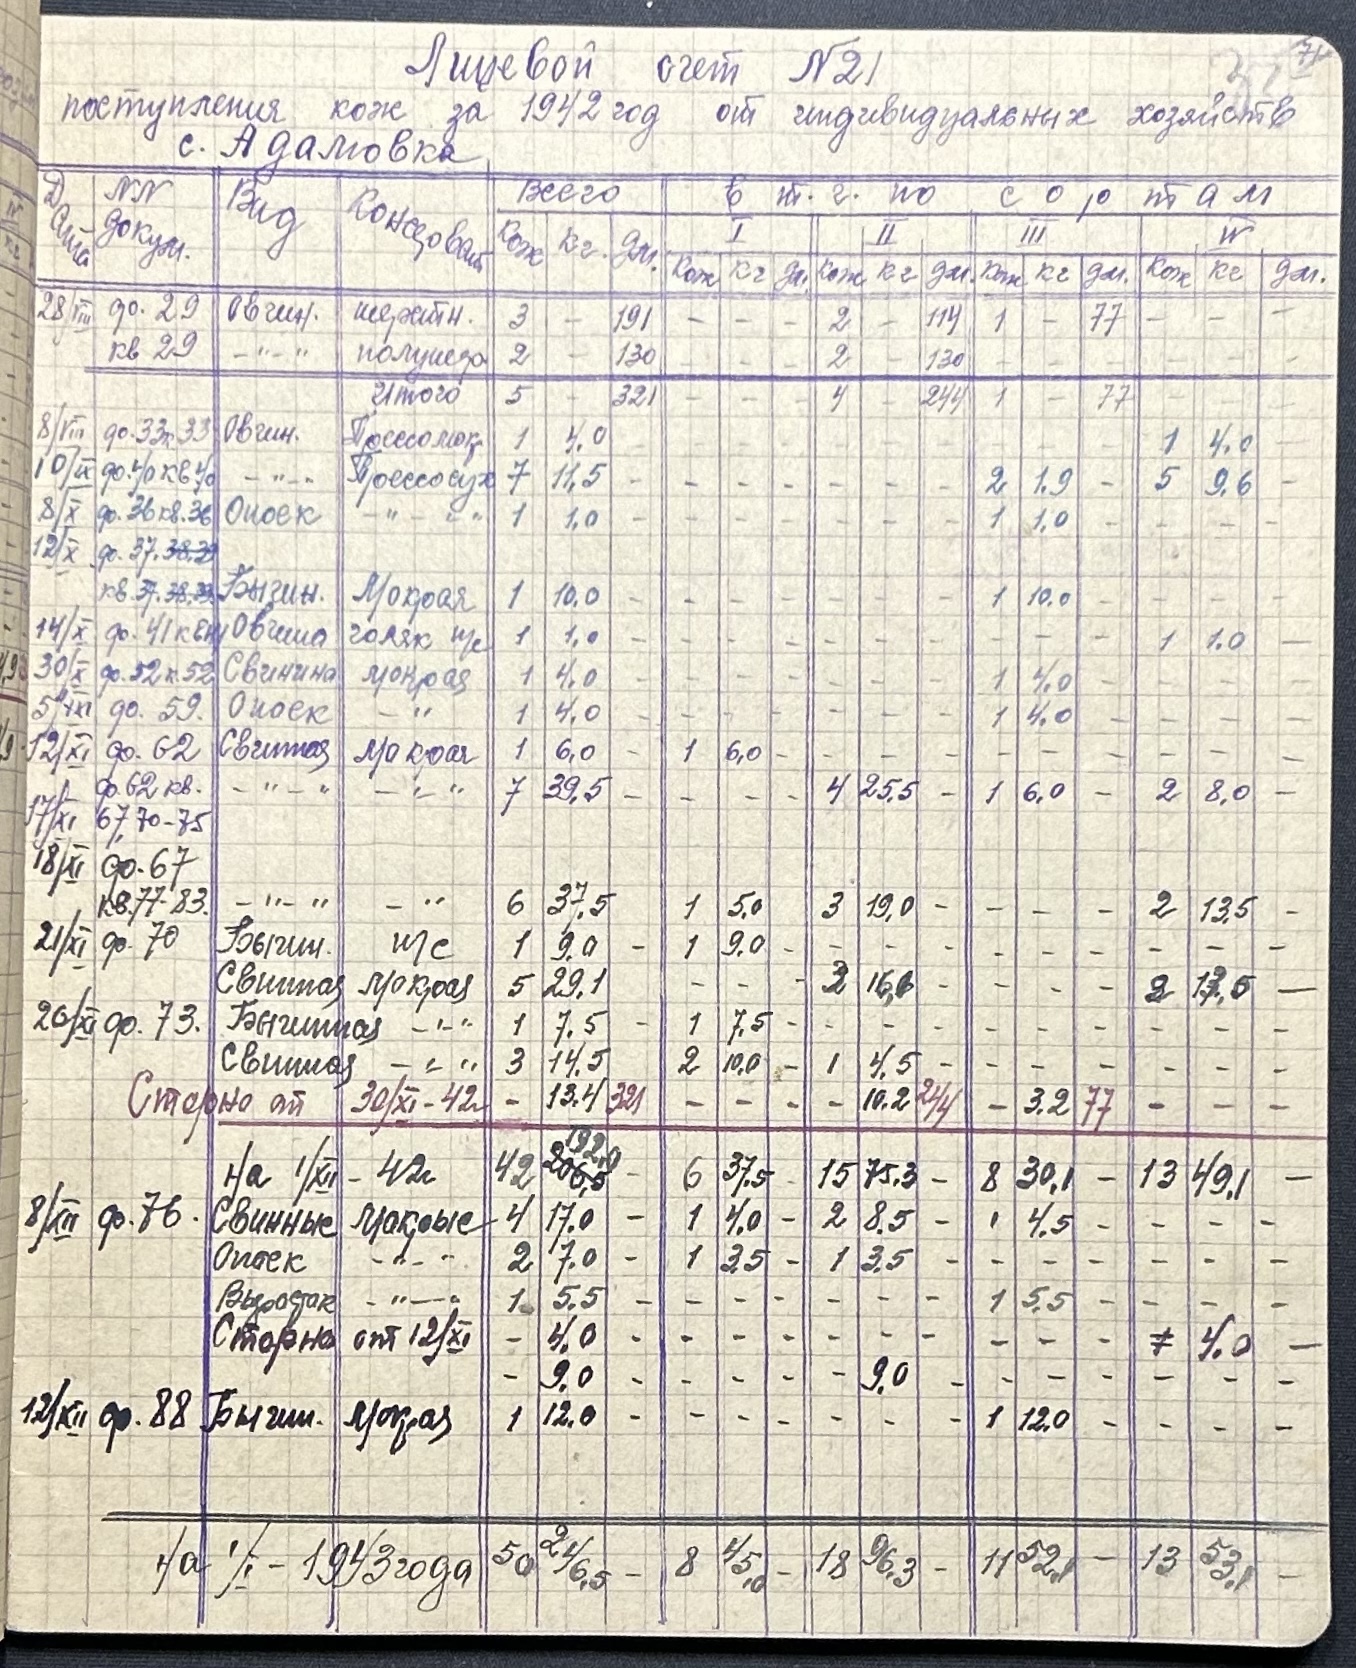 71
Лицевой счет N21
поступления кож за 1942 год от индивидуальных хозяйств
с. Адамовка
Дата NN докум. Вид Консерват. Всего в т. ч. по сортам
I II III IV
Кож кг. дм. Кож кг дм. Кож кг дм. Кож кг дм. Кож кг дм.
28/VIII ф. 29 Овчин. шерстн. 3 - 191 - - - 2 - 114 1 - 77 - - -
кв 29 -"-"- полушер 2 - 130 - - - 2 130 - - - - - -
Итого 5 - 321 - - - 4 - 244 1 - 77 - - -
8/VIII ф. 33к33 Овчин. Пресномок. 1 4.0 - - - - - - - - - - 1 4.0 -
10/IX ф.40 кв40 -"-"- Пресносух 7 11,5 - - - - - - - 2 1.9 - 5 9.6 -
8/X ф. 36 кв. 36 Опоек -"-"- 1 1.0 - - - - - - - 1 1.0 - - - -
12/X ф. 37. 38.39
кв. 37. 38.39. Бычин. Мокрая 1 10.0 - - - - - - - 1 10.0 - - - -
14/X ф. 41 Овчина голяк м/с 1 1.0 - - - - - - - - - - 1 1.0 -
30/X ф. 52 к. 52 Свинина мокрая 1 4.0 - - - - - - - 1 4.0 - - - -
5/XI ф. 59. Опоек -"- 1 4.0 - - - - - - - 1 4.0 - - - -
12/XI ф. 62 Свинная мокрая 1 6,0 - 1 6,0 - - - - - - - - - -
ф. 62 кв. -"-"- -"-"- 7 39,5 - - - - 4 25.5 - 1 6.0 - 2 8.0 -
17/XI 67, 70-75
18/XI ф. 67
кв. 77-83. -"-"- -"- 6 37,5 1 5.0 3 19,0 - - - - 2 13,5 -
21/XI ф. 70 Бычин. м/с 1 9.0 - 1 9.0 - - - - - - - - - -
Свинная мокрая 5 29.1 - - - - - - - 2 -
ф. 73. Бычинная -"- 1 7.5 - 1 7.5 - - - - - - - - - -
Свинная -"-"- 3 14,5 2 10,0 - 1 4.5 - - - - - - -
Сторно от 30/XI-42г - 13.4 321 - - - - 10.2 244 - 3.2 77 - - -
192,0
На 1/XII - 42г 42 206,5 - 6 37,5 - 15 75.3 - 8 30,1 - 13 49,1 -
8/XII ф. 76. Свинные мокрые 4 17.0 - 1 4.0 - 2 8.5 - 1 4.5 - - - -
Опоек -"-"- 2 7.0 - 1 3.5 - 1 3.5 - - - - - - -
Выросток -"-"- 1 5.5 - - - - - - - 1 5.5 - - - -
Сторно от 12/XI - 4.0 - - - - - - - - - - 4.0 -
- 9.0 - - - - 9.0 - - - - - - -
12/XII ф. 88 Бычин. мокрая 1 12.0 - - - - - - - 1 12.0 - - - -
На 1/I - 1943 года 50 246,5 - 8 45,0 - 18 96.3 - 11 52,1 - 13 53,1 -